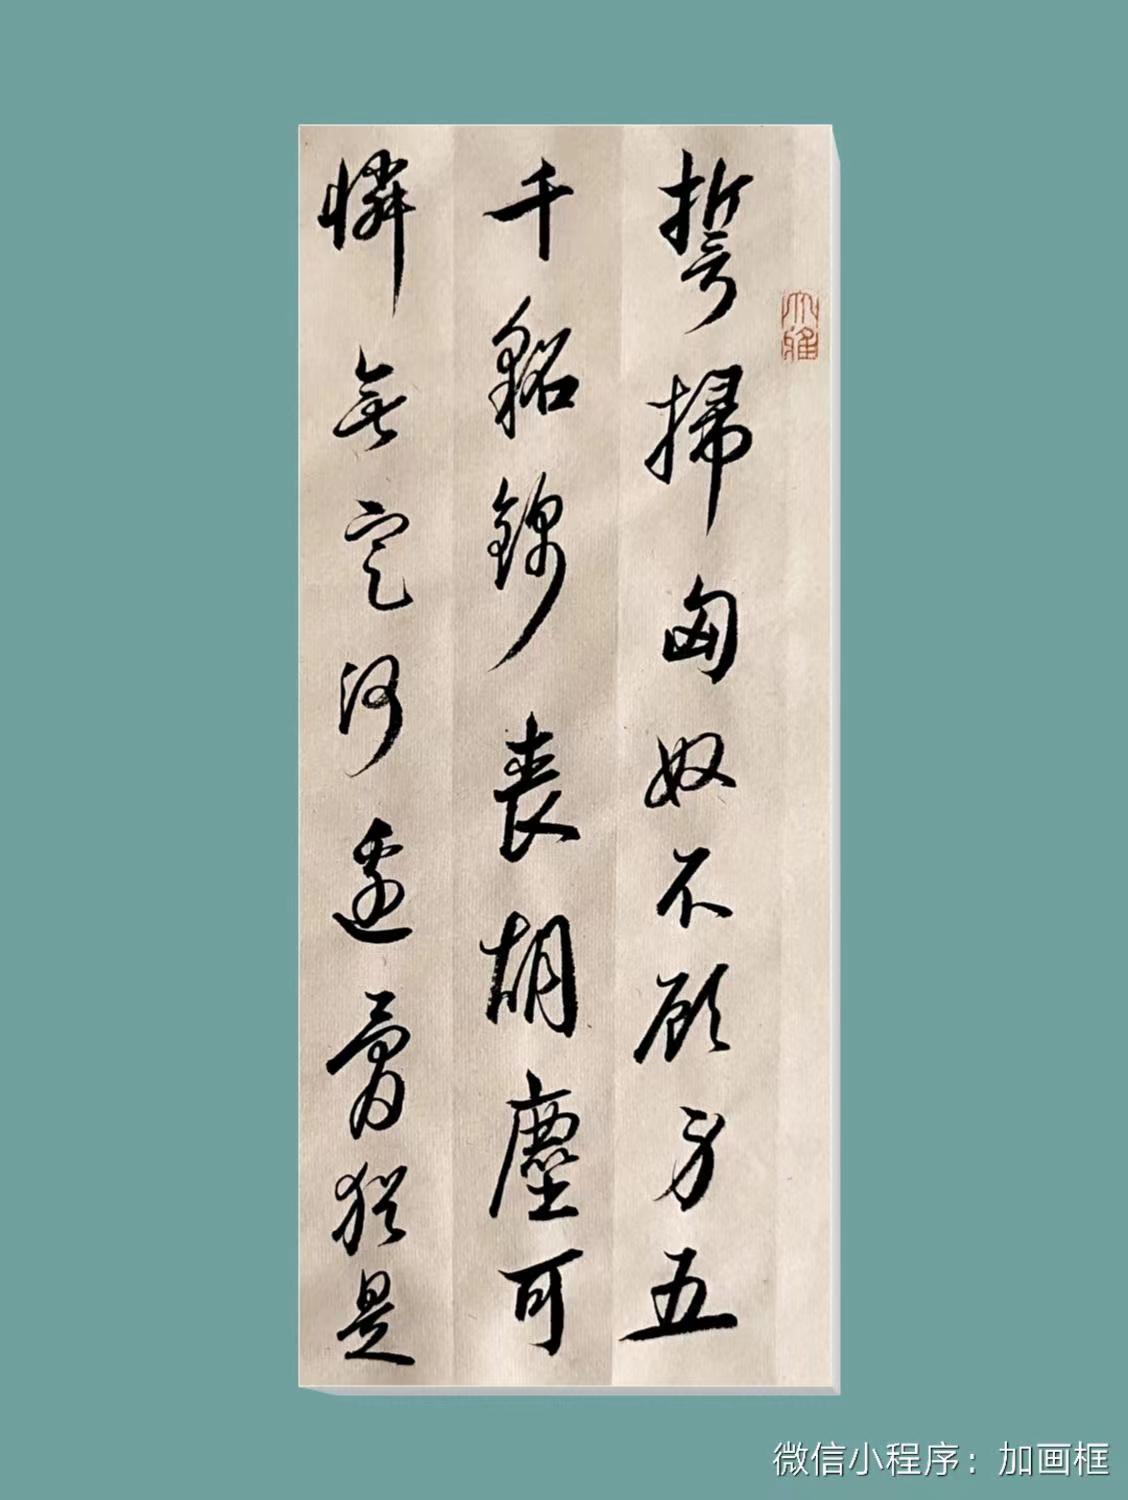 誓掃匈奴不顧身五
千貂錦喪胡塵可
憐無定河邊骨猶是
大雅
微信小程序：加画框